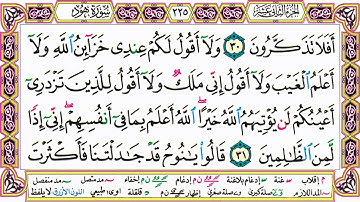 الجزء الثاني عشر ٢٢٥ سورة هود
أَفَلَا تَذَكَّرُونَ ﴿٣٠﴾ وَلَا أَقُولُ لَكُمْ عِندِي خَزَائِنُ اللَّهِ وَلَا
أَعْلَمُ الْغَيْبَ وَلَا أَقُولُ إِنِّي مَلَكٌ وَلَا أَقُولُ لِلَّذِينَ تَزْدَرِي
أَعْيُنُكُمْ لَن يُؤْتِيَهُمُ اللَّهُ خَيْرًا ۖ اللَّهُ أَعْلَمُ بِمَا فِي أَنفُسِهِمْ ۖ إِنِّي إِذًا
لَّمِنَ الظَّالِمِينَ ﴿٣١﴾ قَالُوا يَا نُوحُ قَدْ جَادَلْتَنَا فَأَكْثَرْتَ